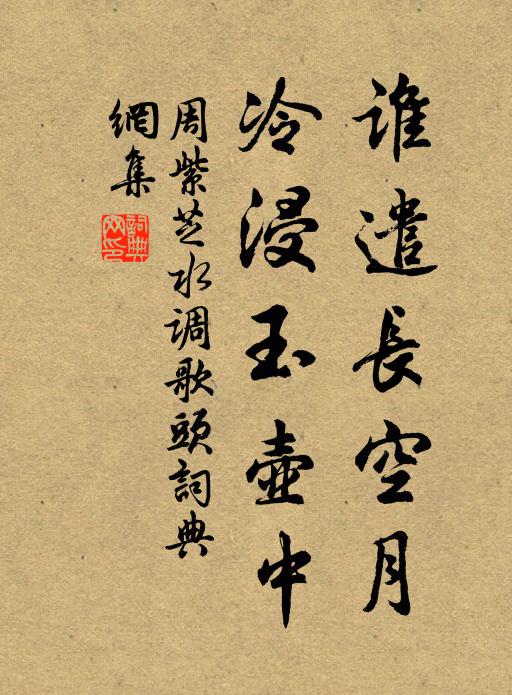 谁遣長空月
冷浸玉壺中
周紫芝水调歌頭詞典
網集
詞典
网印